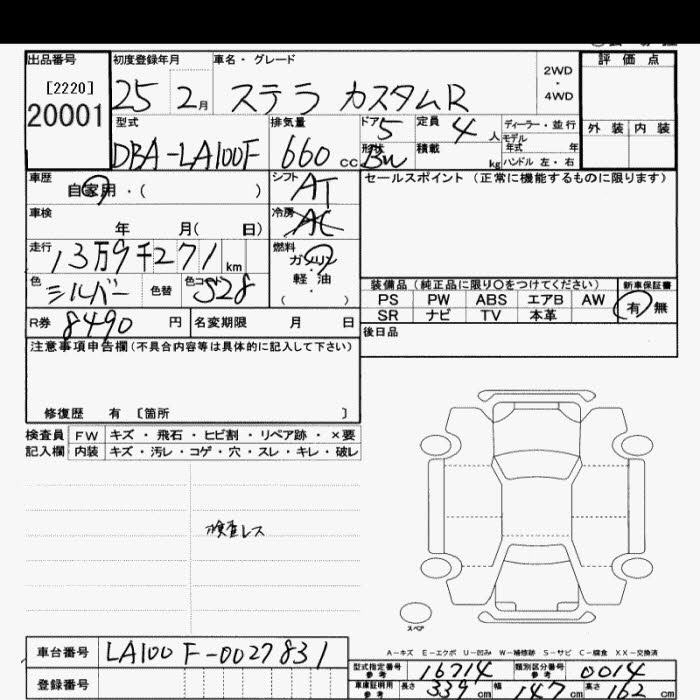 出品番号 初度登録年月 車名・グレード 評価点
[2220]
20001
25 2月 ステラ カスタムR 2WD ・ 4WD
型式 排気量 ドア 定員 ディーラー・並行 外装 内装
DBA-LA100F 660 cc 5 4人
形状 積載 kg モデル年式 年
ハンドル 左・右
車歴 自家用・( ) シフト AT セールスポイント(正常に機能するものに限ります)
車検 年 月( 日) 冷房 AC
走行 13万9千271km 燃料 ガソリン・軽油 ( )
色 シルバー 色替 色コード S28
装備品(純正品に限り○をつけてください) 新車保証書
PS PW ABS エアB AW 有・無
SR ナビ TV 本革
R券 8490 円 名変期限 月 日 後日品
注意事項申告欄(不具合内容等は具体的に記入して下さい)
修復歴 有 〔箇所 〕
検査員 FW キズ・飛石・ヒビ割・リペア跡・×要
記入欄 内装 キズ・汚レ・コゲ・穴・スレ・キレ・破レ
検査レス
スペア
A-キズ E-エクボ U-凹み W-補修跡 S-サビ C-腐食 XX-交換済
車台番号 LA100F-0027831
登録番号
型式指定番号 参考 16714 類別区分番号 参考 0014
車庫証明用 参考 長さ 339cm 幅 147cm 高さ 162cm